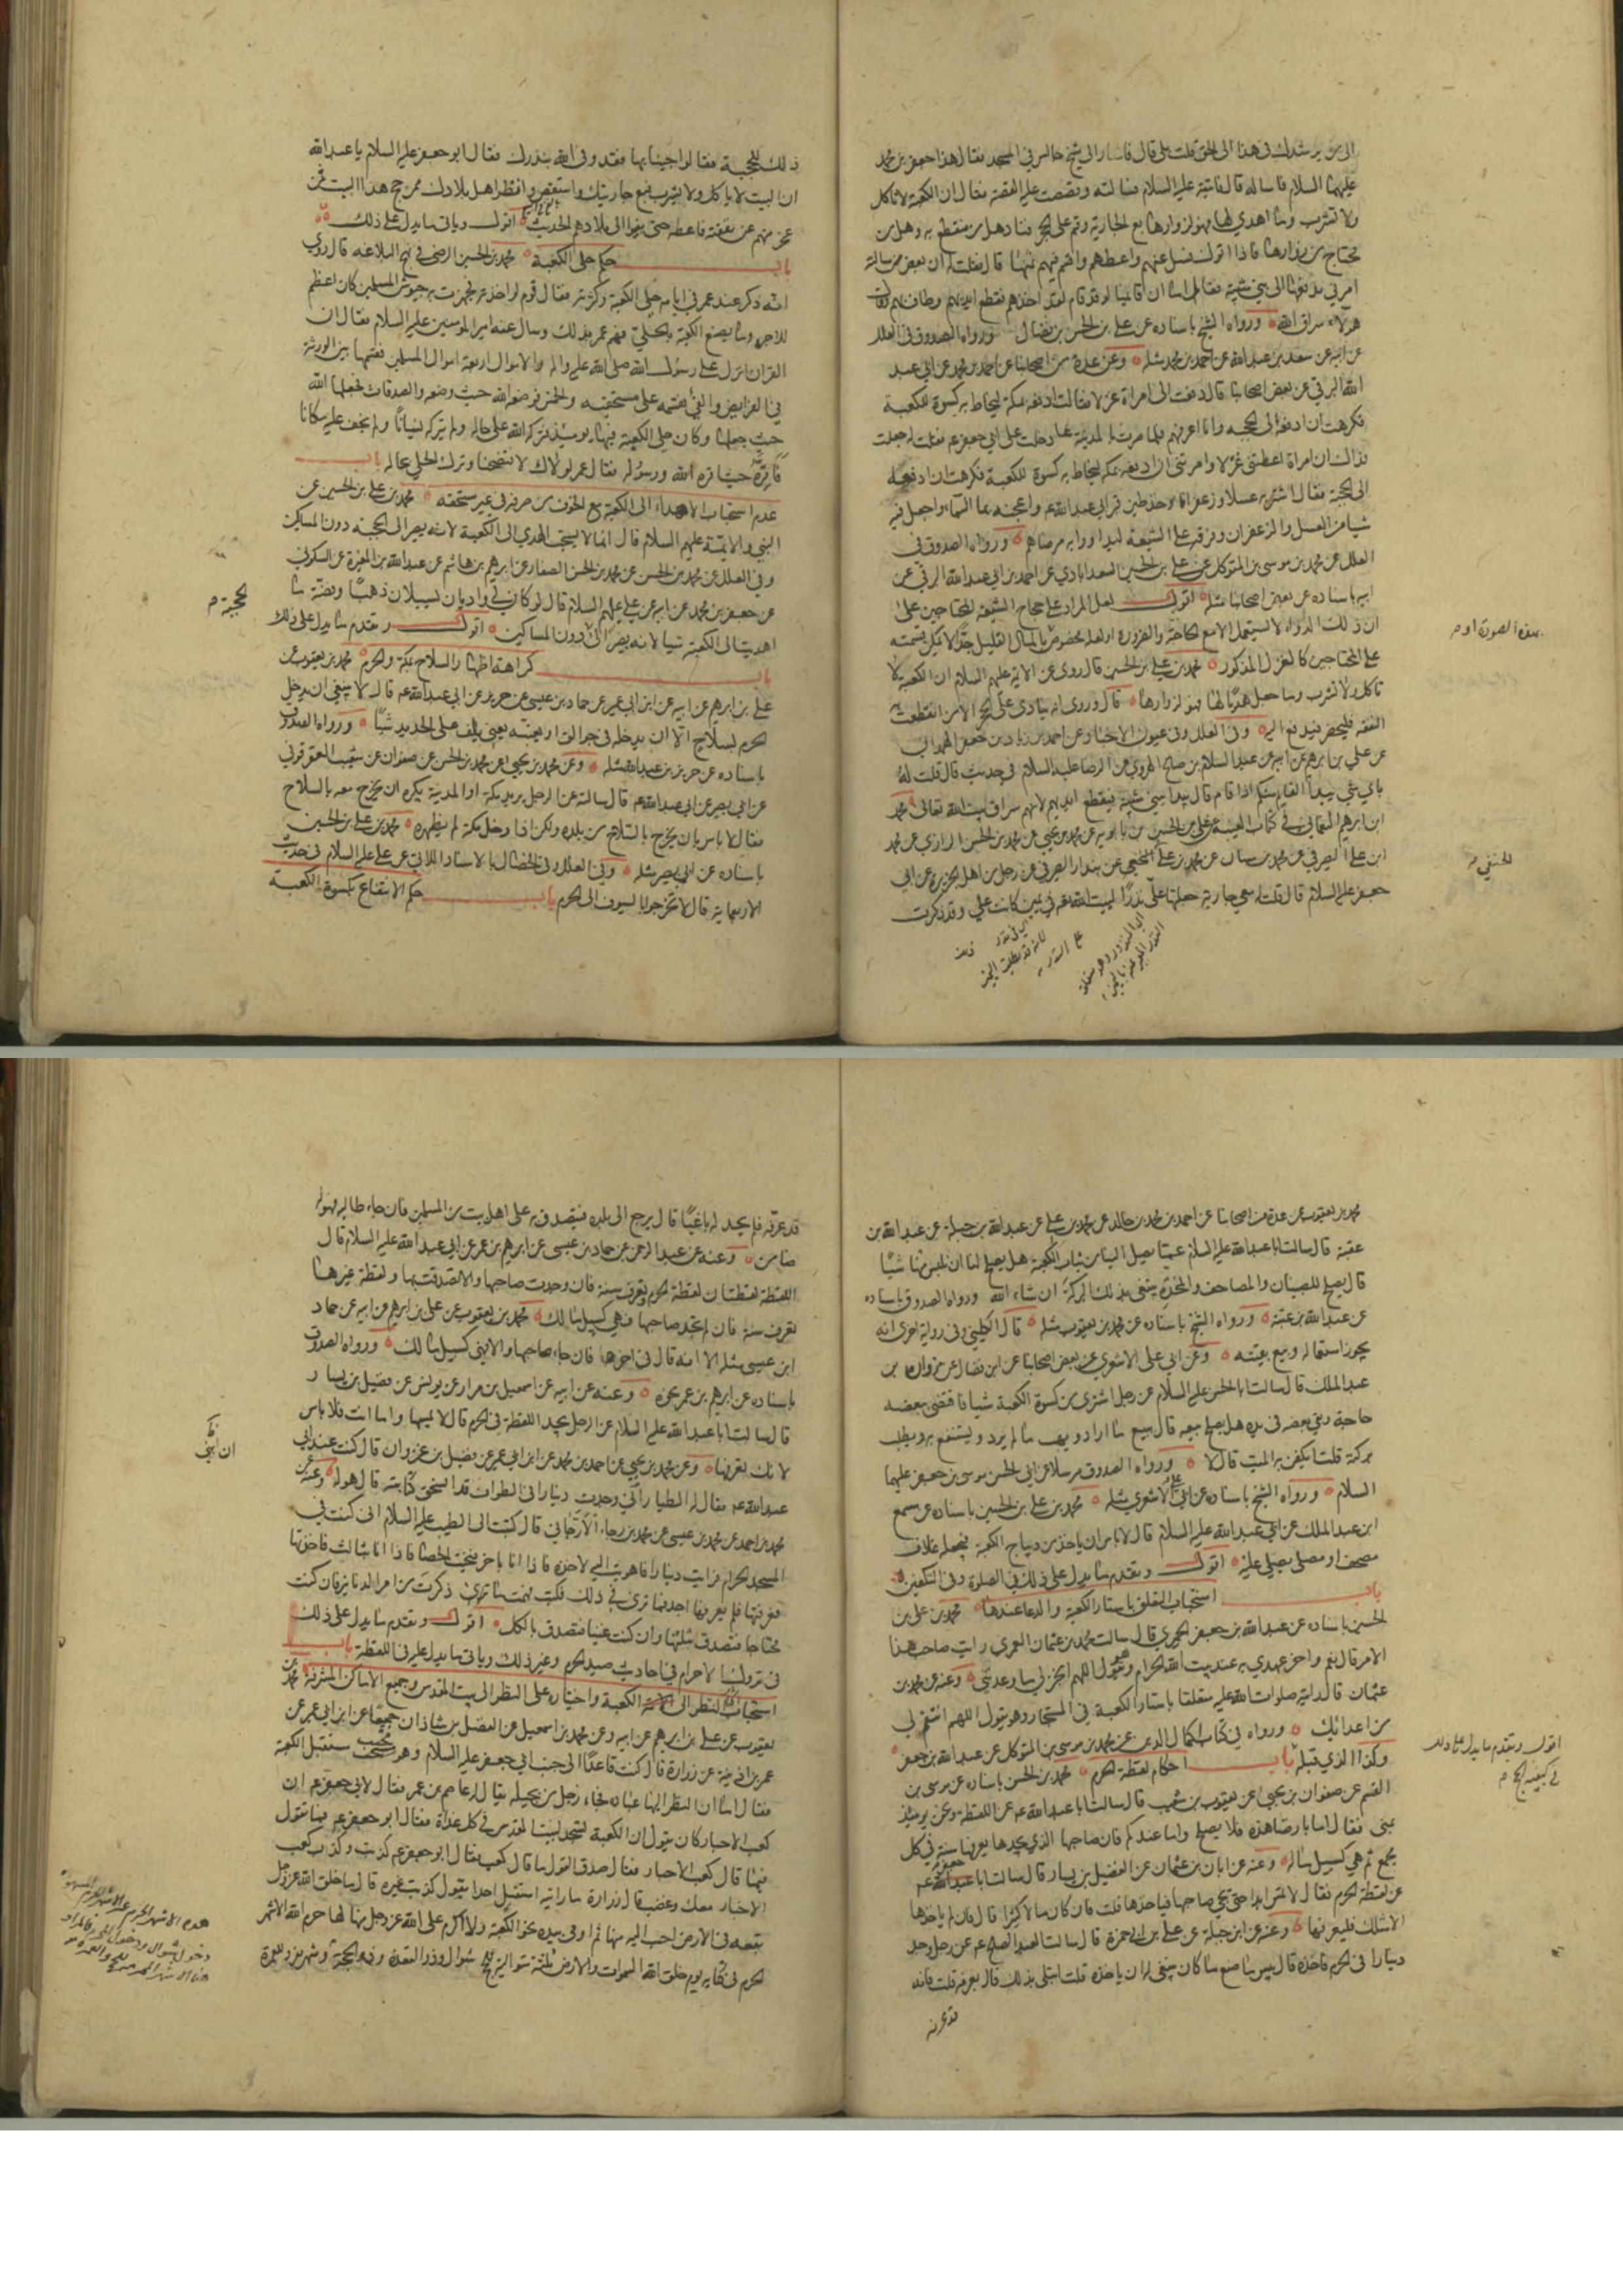 الى من يرشدك فى هذا الى الحق قلت بلى قال فاشار الى شيخ جالس فى المسجد فقال هذا جعفر بن محمد
عليهما السلام فاساله قال فاتيته عليه السلام فسالته وقصصت عليه القصة فقال ان الكعبة لا تاكل
ولا تشرب وما اهدي لها فهو لزوارها بع الجارية وقم على الحجر فناد هل من منقطع به وهل من
محتاج من زوارها فاذا اتوك فسل عنهم واعطهم واقسم فيهم ثمنها قال فقلت له ان بعض من سالته
امرني بدفعها الى بني شيبة فقال اما ان قائمنا لو قد قام لقد اخذهم فقطع ايديهم وطاف بهم وقال
هؤلاء سراق الله ورواه الشيخ باسناده عن علي بن الحسن بن فضال ورواه الصدوق فى العلل
عن ابيه عن سعد بن عبدالله عن احمد بن محمد مثله وعن عدة من اصحابنا عن احمد بن محمد عن ابي عبد
الله البرقي عن بعض اصحابنا قال دفعت الى امراة غزلا فقالت ادفعه بمكة ليخاط به كسوة للكعبة
فكرهت ان ادفعه الى الحجبه وانا اعرفهم فلما صرت بالمدينة دخلت على ابي جعفر عم فقلت له جعلت
فداك ان امراة اعطتني غزلا وامرتني ان ادفعه بمكه ليخاط به كسوة للكعبة فكرهت ان ادفعه
الى الحجبة فقال اشتر به عسلا وزعفرانا وخذ طين قبر ابي عبدالله عم واعجنه بماء السماء واجعل فيه
شيا من العسل والزعفران وفرقه على الشيعه ليداووا به مرضاهم ورواه الصدوق في
العلل عن محمد بن موسى بن المتوكل عن علي بن الحسين السعدابادي عن احمد بن ابي عبدالله البرقي عن
ابيه باسناده عن بعض اصحابنا مثله اقول لعل المراد على حجاج الشيعه المحتاجين على
ان ذلك الدواء لا يستعمل الا مع الحاجة والضرورة او لعله مخصوص بالمال القليل جدا لا يمكن قسمته
على المحتاجين كالغزل المذكور محمد بن علي بن الحسين قال روى عن الائمة عليهم السلام ان الكعبة لا
تاكل ولا تشرب وما جعل هديا لها فهو لزوارها قال وروى انه ينادى على الحجر الا من انقطعت به
النفقه فليحضر فيدفع اليه وفى العلل وفى عيون الاخبار عن احمد بن زياد بن جعفر الهمداني
عن علي بن ابرهيم عن ابيه عن عبد السلام بن صالح الهروي عن الرضا عليه السلام فى حديث قال قلت له
باي شئ يبدأ القائم منكم اذا قام قال يبدا ببني شيبة فيقطع ايديهم لانهم سراق بيت الله تعالى محمد
ابن ابرهيم النعماني في كتاب الغيبة عن علي بن الحسين بن بابويه عن محمد بن يحيى عن محمد بن الحسن الرازي عن محمد
ابن علي الصيرفي عن محمد بن سنان عن محمد بن علي الخثعمي عن بندار الصيرفي عن رجل من اهل الجزيرة عن ابي
جعفر عليه السلام قال قلت له معي جارية جعلتها علي نذرا لبيت الله في يمين كانت علي وقد ذكرت
بهذه الصورة او م
الحنفي م
ذلك للحجبة فقالوا جئنا بها فقد وفى الله بنذرك فقال ابو جعفر عليه السلام يا عبدالله
ان البيت لا ياكل ولا يشرب فبع جاريتك واستقص وانظر اهل بلادك ممن حج هذا البيت فمن
عجز منهم عن نفقة فاعطه حتى يقووا الى بلادهم الحديث اقول وياتى ما يدل على ذلك
باب حكم حلى الكعبة محمد بن الحسين الرضى فى نهج البلاغه قال روي
انه ذكر عند عمر فى ايامه حلى الكعبة وكثرته فقال قوم لو اخذته فجهزت به جيوش المسلمين كان اعظم
للاجر وما يصنع الكعبة بالحلي فهم عمر بذلك وسال عنه امير المومنين عليه السلام فقال ان
القران انزل على رسول الله صلى الله عليه واله والاموال اربعة اموال المسلمين فقسمها بين الورثة
فى الفرايض والفئ فقسمه على مستحقيه والخمس فوضعه الله حيث وضعه والصدقات فجعلها الله
حيث جعلها وكان حلى الكعبة فيها يومئذ فتركه الله على حاله ولم يتركه نسيانا ولم يخف عليه مكانا
فاقره حيث اقره الله ورسوله فقال عمر لولاك لافتضحنا وترك الحلي بحاله باب
عدم استحباب الاهداء الى الكعبة مع الخوف من صرفه فى غير مستحقه محمد بن علي بن الحسين عن
النبي والائمة عليهم السلام قال انما لا يستحب الهدي الى الكعبة لانه يصير الى الحجبه دون المساكين
وفى العلل عن محمد بن الحسن عن محمد بن الحسن الصفار عن ابرهيم بن هاشم عن عبدالله بن المغيرة عن السكوني
عن جعفر بن محمد عن ابيه عن علي عليهم السلام قال لو كان لي واديان يسيلان ذهبا وفضة ما
اهديت الى الكعبة شيا لانه يصير الى دون المساكين اقول وتقدم ما يدل على ذلك
باب كراهة اظهار السلاح بمكة والحرم محمد بن يعقوب عن
علي بن ابرهيم عن ابيه عن ابن ابي عمير عن حماد بن عيسى عن حريز عن ابي عبدالله عم قال لا ينبغي ان يدخل
الحرم بسلاح الا ان يدخله فى جوالق او يغيبه يعني يلف على الحديد شيئا ورواه الصدوق
باسناده عن حريز بن عبدالله مثله وعن محمد بن يحيى عن محمد بن الحسن عن صفوان عن شعيب العقرقوفي
عن ابي بصير عن ابي عبدالله عم قال سالته عن الرجل يريد مكة او المدينة يكره ان يخرج معه بالسلاح
فقال لا باس بان يخرج بالسلاح من بلده ولكن اذا دخل مكة لم يظهره محمد بن علي بن الحسين
باسناده عن ابي بصير مثله وفى العلل وفى الخصال بالاسناد الاتي عن علي عليه السلام فى حديث
الاربعماية قال لا تخرجوا بالسيوف الى الحرم باب حكم الانتفاع بكسوة الكعبة
للحجبة م
محمد بن يعقوب عن عدة من اصحابنا عن احمد بن محمد بن خالد عن محمد بن علي عن عبدالله بن جبلة عن عبدالله بن
عتبة قال سالت ابا عبدالله عليه السلام عما يصل الينا من ثياب الكعبة هل يصلح لنا ان نلبس منها شيئا
قال يصلح للصبيان والمصاحف والمخدة يبتغى بذلك البركة ان شاء الله ورواه الصدوق باسناده
عن عبدالله بن عتبة ورواه الشيخ باسناده عن محمد بن يعقوب مثله قال الكليني وفى رواية اخرى انه
يجوز استعماله وبيع بقيته وعن ابي علي الاشعري عن بعض اصحابنا عن ابن فضال عن مروان بن
عبد الملك قال سالت ابا الحسن عليه السلام عن رجل اشترى من كسوة الكعبة شيئا فاقتضى ببعضه
حاجة وبقي بعضه فى يده هل يصلح بيعه قال يبيع ما اراد ويهب ما لم يرد ويستنفع به ويطلب
بركته قلت ايكفن به الميت قال لا ورواه الصدوق مرسلا عن ابي الحسن موسى بن جعفر عليهما
السلام ورواه الشيخ باسناده عن ابي علي الاشعري مثله محمد بن علي بن الحسين باسناده عن مسمع
ابن عبد الملك عن ابي عبدالله عليه السلام قال لا باس ان ياخذ من ديباج الكعبة فيجعله غلاف
مصحف او مصلى يصلي عليه اقول وتقدم ما يدل على ذلك فى الصلوة وفى التكفين
باب استحباب التعلق باستار الكعبة والدعا عندها محمد بن علي بن
الحسين باسناده عن عبدالله بن جعفر الحميري قال سالت محمد بن عثمان العمري رايت صاحب هذا
الامر قال نعم واخر عهدي به عند بيت الله الحرام وهو يقول اللهم انجز لي ما وعدتني وعنه عن محمد بن
عثمان قال رايته صلوات الله عليه متعلقا باستار الكعبة فى المستجار وهو يقول اللهم انتقم لي
من اعدائك ورواه في كتاب اكمال الدين عن محمد بن موسى بن المتوكل عن عبدالله بن جعفر
وكذا الذي قبله باب احكام لقطة الحرم محمد بن الحسن باسناده عن موسى بن
القسم عن صفوان بن يحيى عن يعقوب بن شعيب قال سالت ابا عبدالله عم عن اللقطة ونحن يومئذ
بمنى فقال اما بارضنا هذه فلا يصلح واما عندكم فان صاحبها الذي يجدها يعرفها سنة فى كل
مجمع ثم هي كسبيل ماله وعنه عن ابان بن عثمان عن الفضيل بن يسار قال سالت ابا جعفر عم
عن لقطة الحرم فقال لا تمس ابدا حتى يجئ صاحبها فياخذها قلت فان كان مالا كثيرا قال فان لم ياخذها
الا مثلك فليعرفها وعنه عن ابن جبلة عن علي بن ابي حمزة قال سالت العبد الصالح عم عن رجل وجد
دينارا فى الحرم فاخذه قال بئس ما صنع ما كان ينبغي له ان ياخذه قلت ابتلى بذلك قال يعرفه قلت فانه
قد عرفه
اقول وتقدم ما يدل على ذلك
فى كيفية الحج م
قد عرفه فلم يجد له باغيا قال يرجع الى بلده فيتصدق به على اهل بيت من المسلمين فان جاء طالبه فهو له
ضامن وعنه عن عبد الرحمن عن حماد بن عيسى عن ابرهيم بن عمر عن ابي عبدالله عليه السلام قال
اللقطة لقطتان لقطة الحرم وتعرف سنة فان وجدت صاحبها والا تصدقت بها ولقطة غيرها
تعرف سنة فان لم تجد صاحبها فهي كسبيل مالك محمد بن يعقوب عن علي بن ابرهيم عن ابيه عن حماد
ابن عيسى مثله الا انه قال فى اخرها فان جاء صاحبها والا فهي كسبيل مالك ورواه الصدوق
باسناده عن ابرهيم بن عمر نحوه وعنه عن ابيه عن اسمعيل بن مرار عن يونس عن فضيل بن يسار
قال سالت ابا عبدالله عليه السلام عن الرجل يجد اللقطة فى الحرم قال لا يمسها واما انت فلا باس
لانك تعرفها وعن محمد بن يحيى عن احمد بن محمد عن ابن ابي عمير عن فضيل بن غزوان قال كنت عند ابي
عبدالله عم فقال له الطيار اني وجدت دينارا فى الطواف قد انسحق كتابته قال هو له وعنه عن
محمد بن احمد عن محمد بن عيسى عن محمد بن رجاء الارجاني قال كتبت الى الطيب عليه السلام اني كنت في
المسجد الحرام فرايت دينارا فاهويت اليه لاخذه فاذا انا باخر فنحيت الحصا فاذا انا بثالث فاخذتها
فعرفتها فلم يعرفها احد فما ترى فى ذلك فكتب فهمت ما ذكرت من امر الدنانير فان كنت
محتاجا فتصدق بثلثها وان كنت غنيا فتصدق بالكل اقول وتقدم ما يدل على ذلك
فى تروك الاحرام فى احاديث صيد الحرم وغير ذلك وياتى ما يدل عليه فى اللقطة باب
استحباب النظر الى الكعبة واختياره على النظر الى بيت المقدس وجميع الاماكن المشرفة محمد بن
يعقوب عن علي بن ابرهيم عن ابيه وعن محمد بن اسمعيل عن الفضل بن شاذان جميعا عن ابن ابي عمير عن
عمر بن اذينة عن زرارة قال كنت قاعدا الى جنب ابي جعفر عليه السلام وهو محتب مستقبل الكعبة
فقال اما ان النظر اليها عبادة فجاءه رجل من بجيلة يقال له عاصم بن عمر فقال لابي جعفر عم ان
كعب الاحبار كان يقول ان الكعبة لتسجد لبيت المقدس فى كل غداة فقال ابو جعفر عم فما تقول
فيما قال كعب الاحبار فقال صدق القول ما قال كعب فقال ابو جعفر عم كذبت وكذب كعب
الاحبار معك وغضب قال زرارة ما رايته استقبل احدا بقول كذبت غيره قال ما خلق الله عز وجل
بقعه فى الارض احب اليه منها ثم اومى بيده نحو الكعبة ولا اكرم على الله عز وجل منها لها حرم الله الاشهر
الحرم فى كتابه يوم خلق السموات والارض ثلثة متوالية للحج شوال وذو القعدة وذو الحجة وشهر مفرد للعمرة